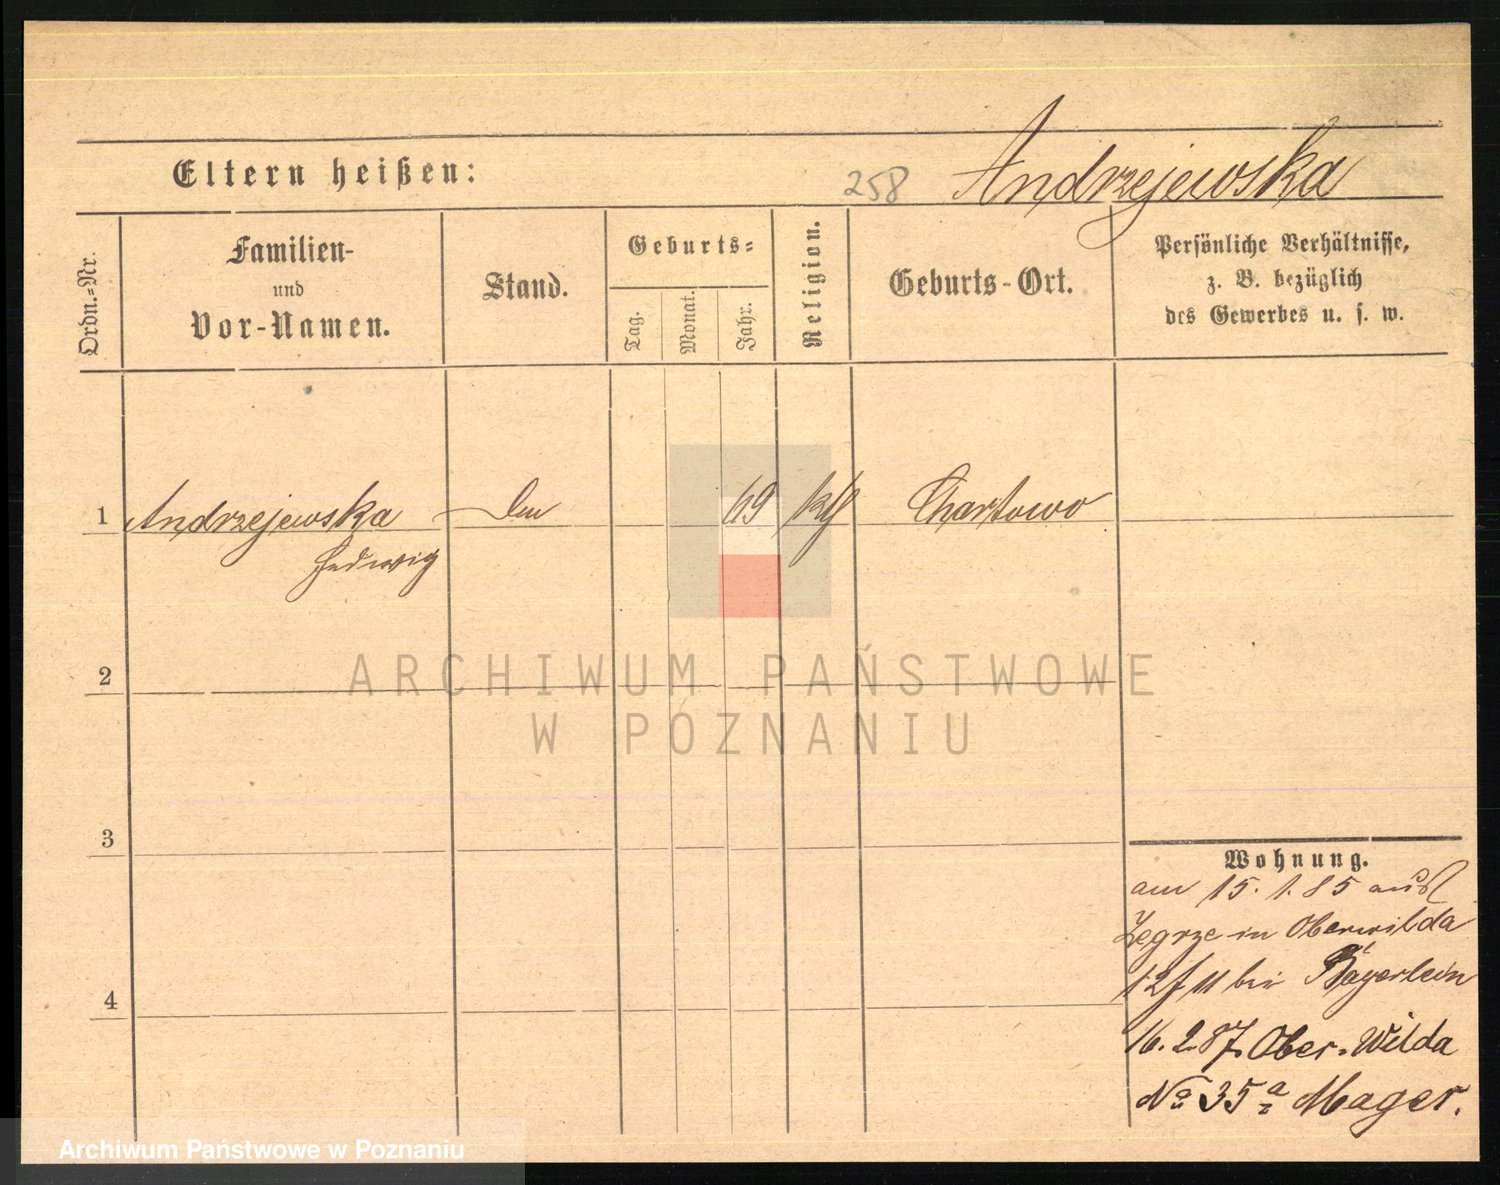 Eltern heißen:
258 Andrzejewska
Ordn.-Nr.
Familien-
und
Vor-Namen.
Stand.
Geburts-
Tag.
Monat.
Jahr.
Religion.
Geburts-Ort.
Persönliche Verhältnisse,
z. B. bezüglich
des Gewerbes u. s. w.
1 Andrzejewska 69 kth Chartowo
Hedwig
2
3
4
Wohnung.
am 15. 1. 85 aus
Zegrze in Oberwilda
bei Bayerlein
16. 2. 87. Ober-Wilda
No 35 a Mager.
ARCHIWUM PAŃSTWOWE
W POZNANIU
Archiwum Państwowe w Poznaniu